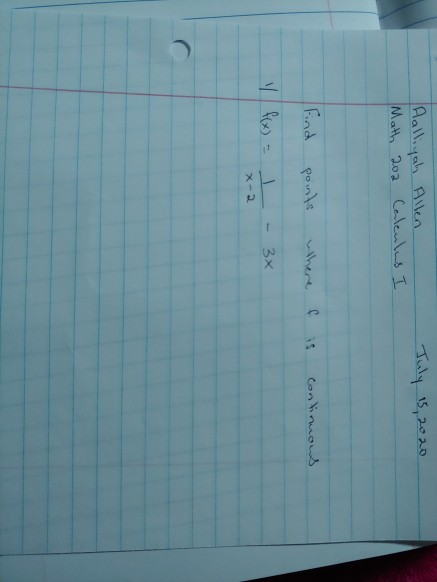 Aalliyah Allen July 15, 2020
Math 202 Calculus I
Find points where f is continuous
1/ f(x) = 1/(x-2) - 3x